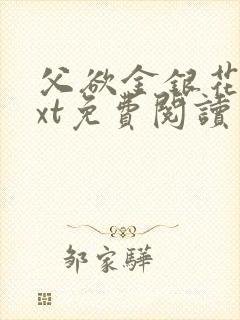 父欲金銀花
xt免費閱讀
邹家驊